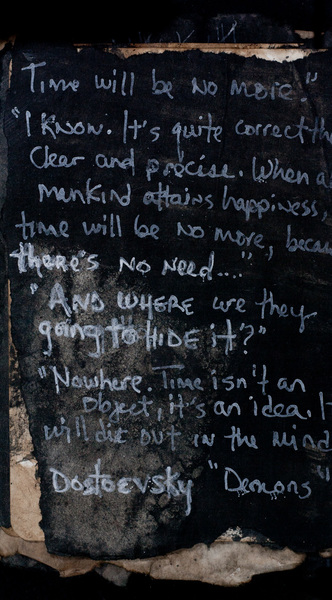 Time will be no more."
"I know. It's quite correct the
Clear and precise. When a
mankind attains happiness,
time will be no more, becau
there's no need...."
"And where are they
going to hide it?"
"Nowhere. Time isn't an
object, it's an idea. I
will die out in the mind
Dostoevsky "Demons"